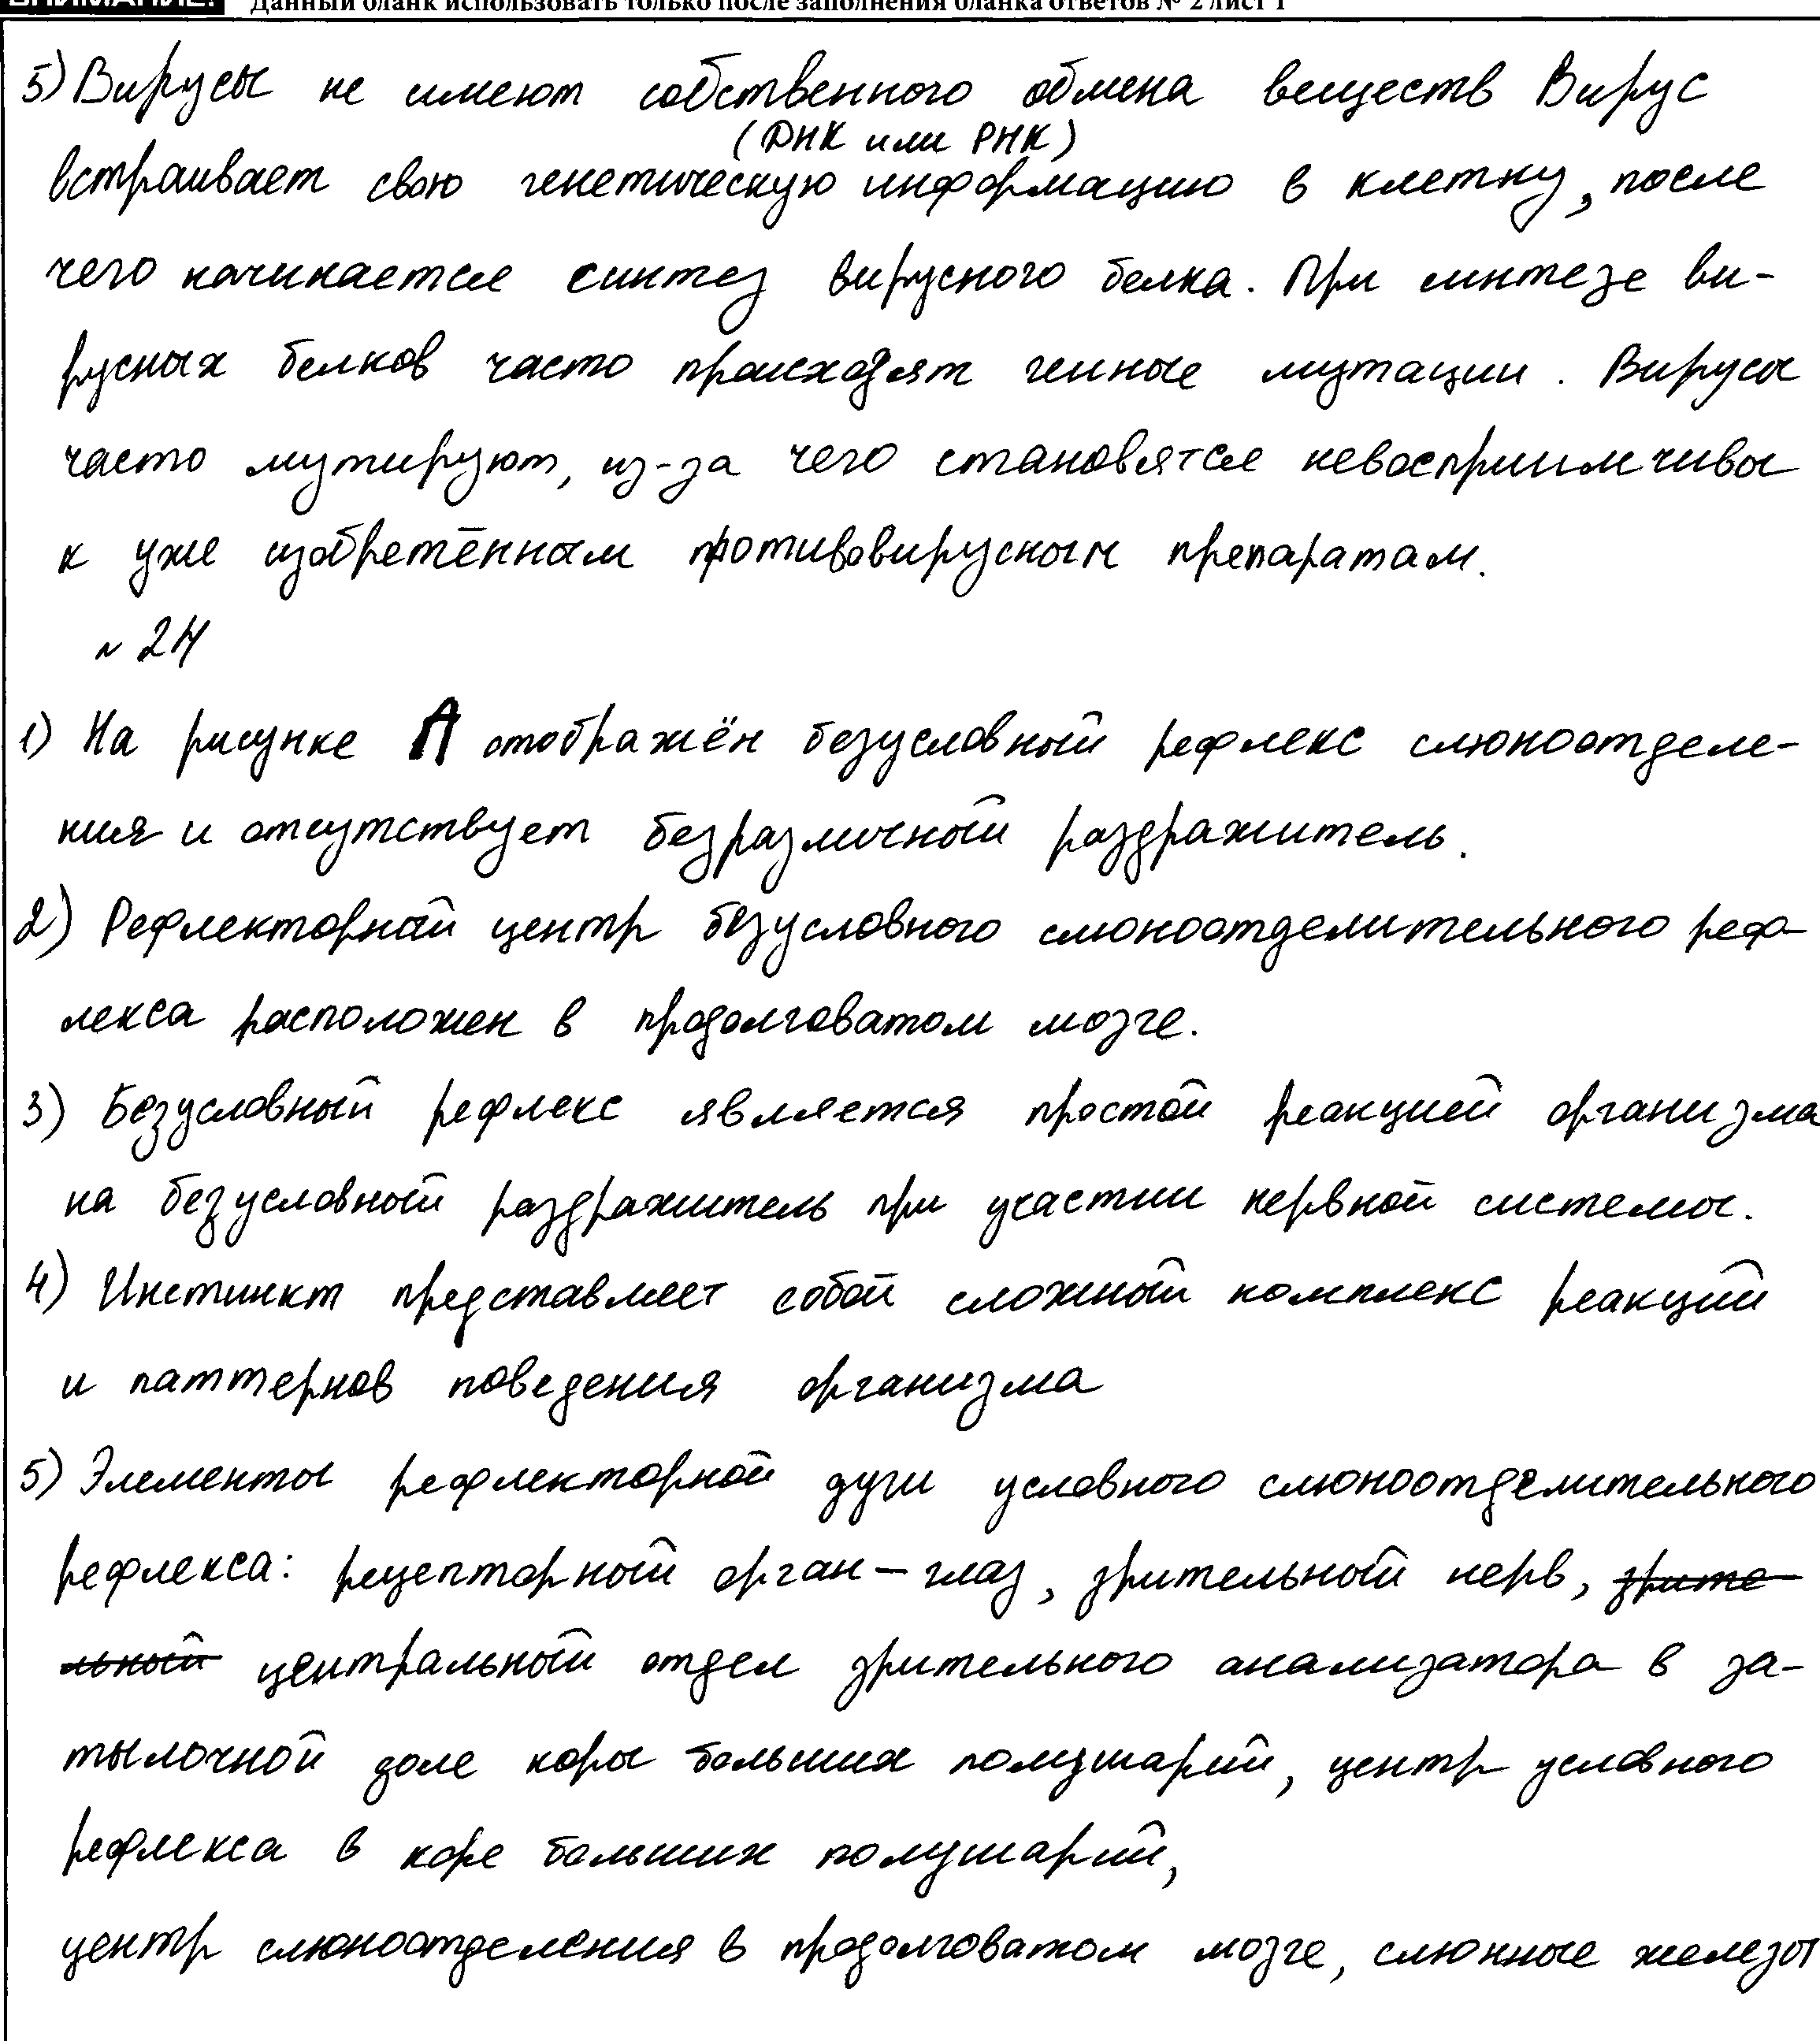 ВНИМАНИЕ! Данный бланк использовать только после заполнения бланка ответов № 2 лист 1
5) Вирусы не имеют собственного обмена веществ Вирус
(ДНК или РНК)
встраивает свою генетическую информацию в клетку, после
чего начинается синтез вирусного белка. При синтезе ви-
русных белков часто происходят генные мутации. Вирусы
часто мутируют, из-за чего становятся невосприимчивы
к уже изобретённым противовирусным препаратам.
~ 24
1) На рисунке А отображён безусловный рефлекс слюноотделе-
ния и отсутствует безразличный раздражитель.
2) Рефлекторный центр безусловного слюноотделительного реф-
лекса расположен в продолговатом мозге.
3) Безусловный рефлекс является простой реакцией организма
на безусловный раздражитель при участии нервной системы.
4) Инстинкт представляет собой сложный комплекс реакций
и паттернов поведения организма
5) Элементы рефлекторной дуги условного слюноотделительного
рефлекса: рецепторный орган – глаз, зрительный нерв, зрите-
льный центральный отдел зрительного анализатора в за-
тылочной доле коры больших полушарий, центр условного
рефлекса в коре больших полушарий,
центр слюноотделения в продолговатом мозге, слюнные железы